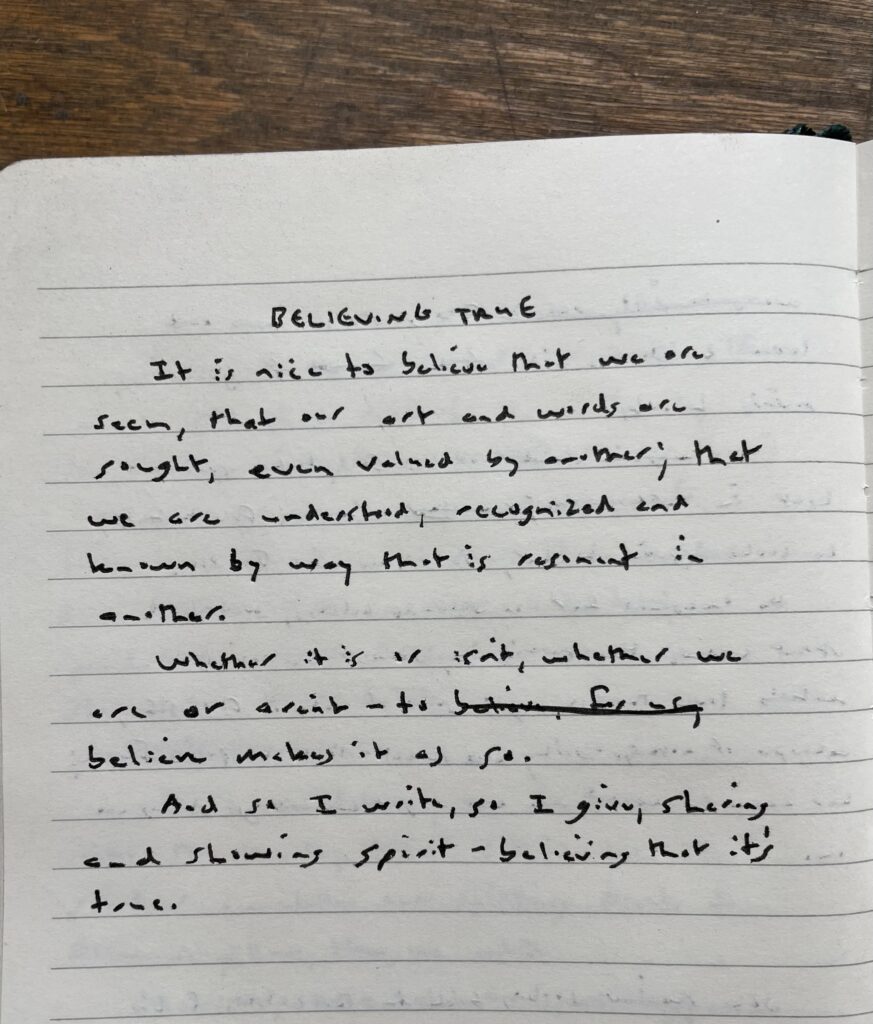 BELIEVING TRUE
It is nice to believe that we are
seen, that our art and words are
sought, even valued by another; that
we are understood, recognized and
known by way that is resonant in
another.
Whether it is or isn't, whether we
are or aren't - to believe, for us,
believe makes it as so.
And so I write, so I give, sharing
and showing spirit - believing that it's
true.